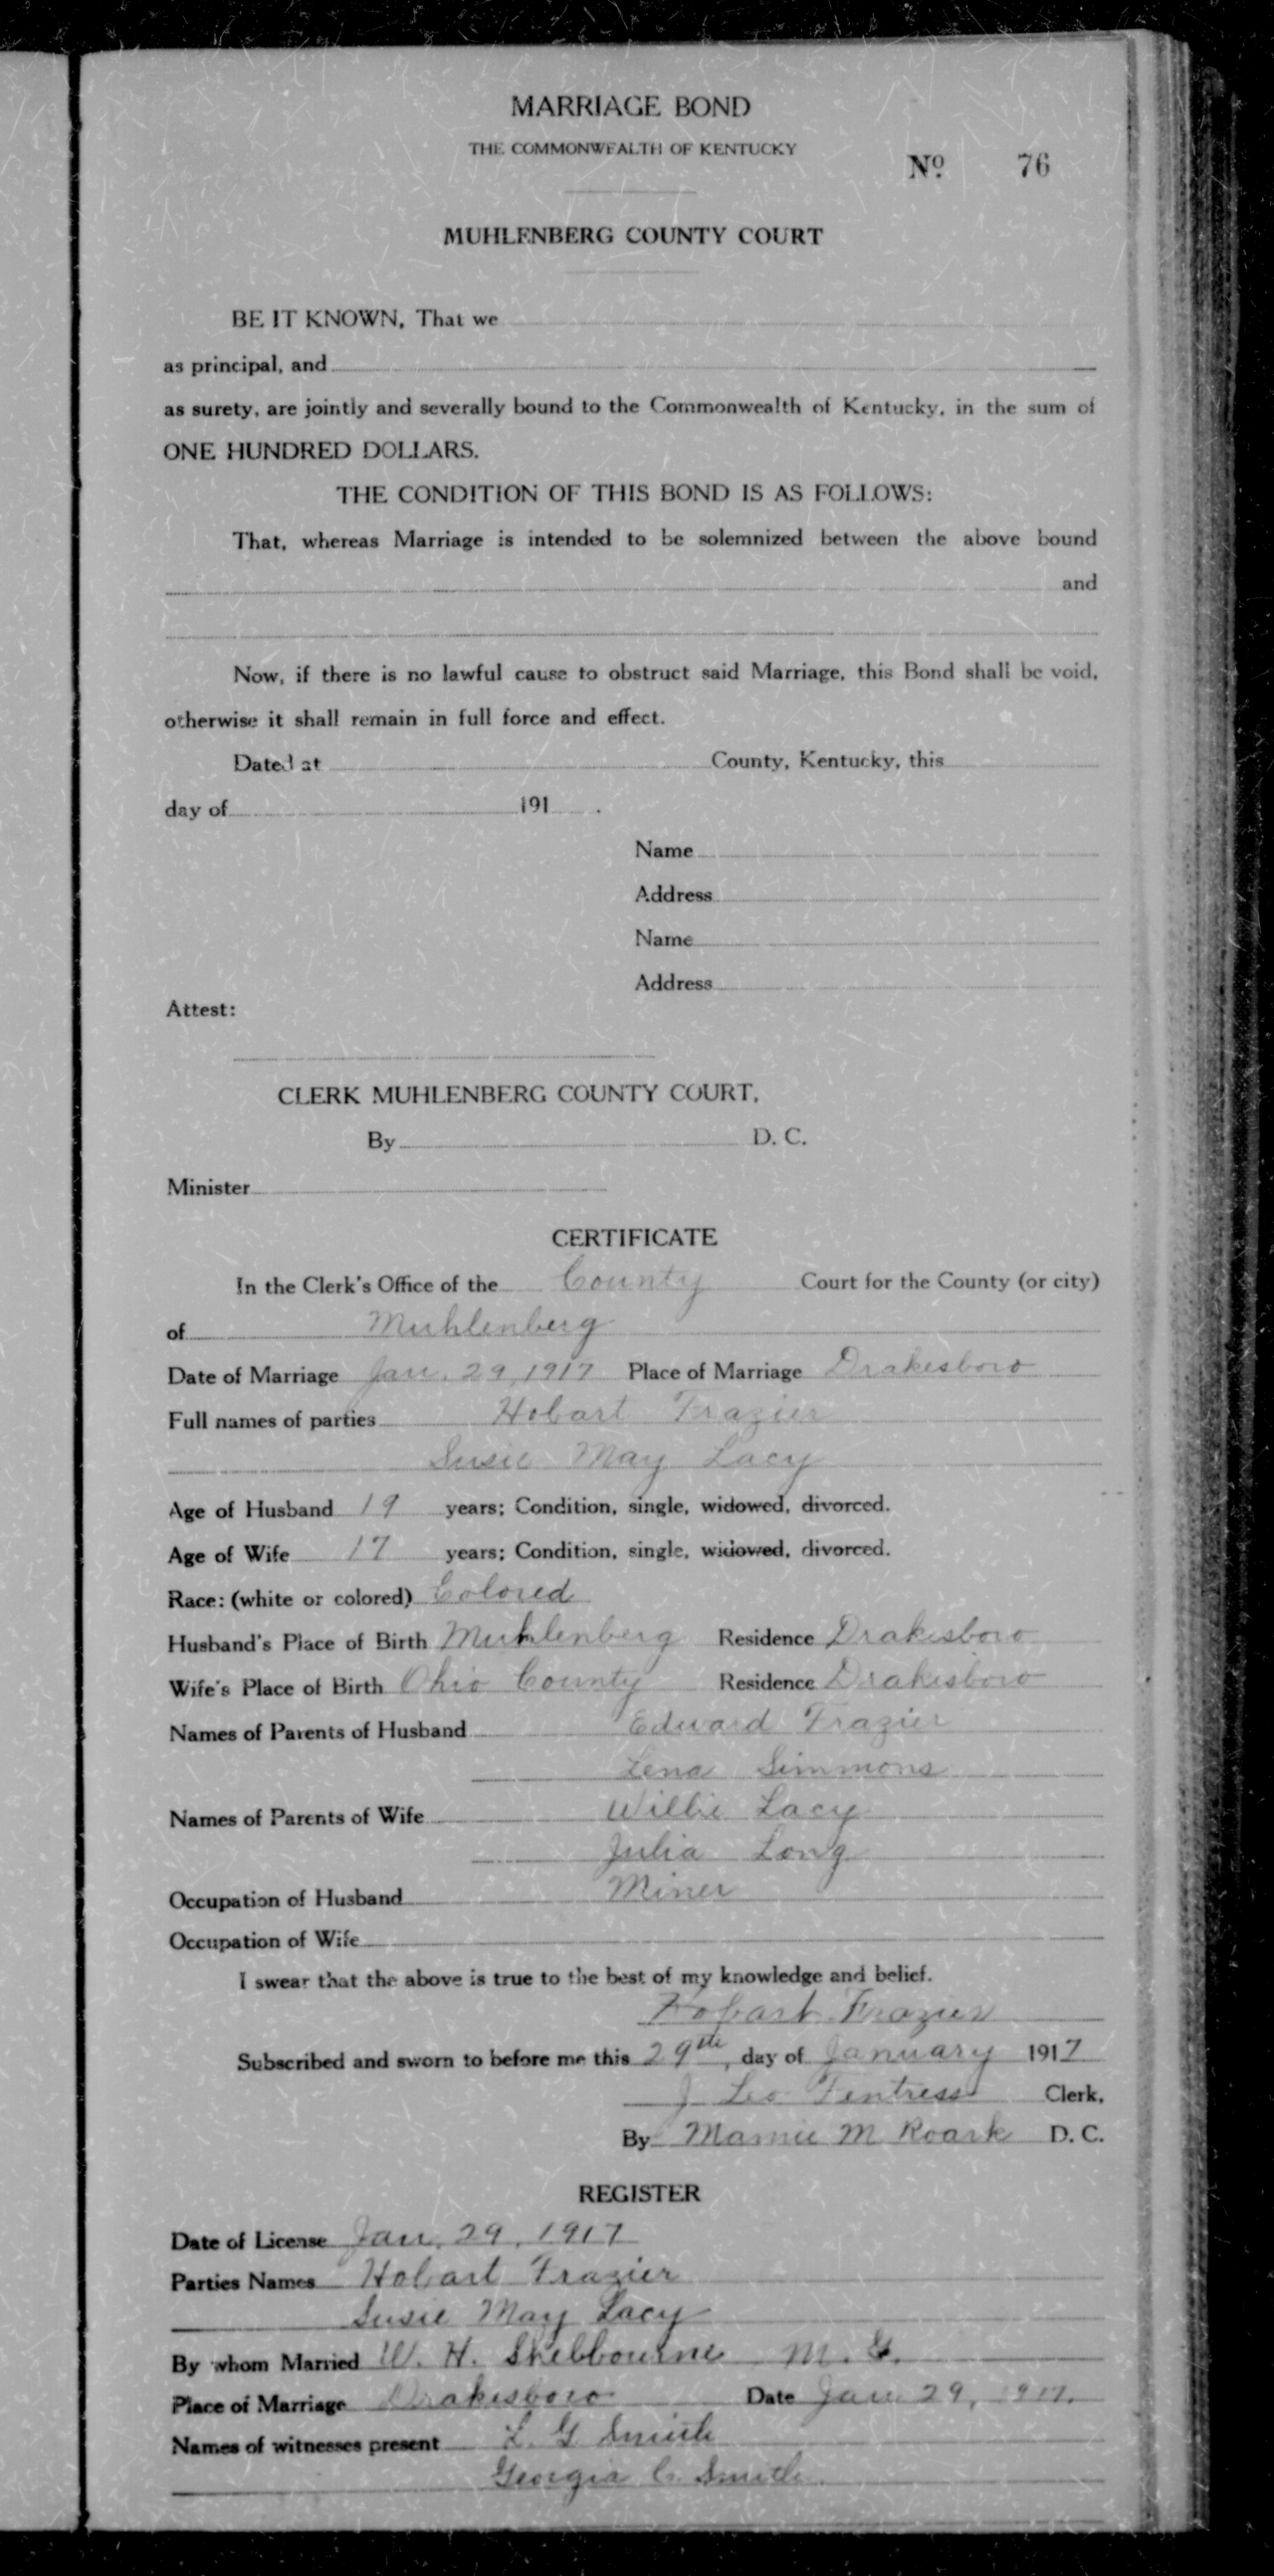 MARRIAGE BOND
THE COMMONWEALTH OF KENTUCKY
No. 76
MUHLENBERG COUNTY COURT
BE IT KNOWN, That we
as principal, and
as surety, are jointly and severally bound to the Commonwealth of Kentucky, in the sum of
ONE HUNDRED DOLLARS.
THE CONDITION OF THIS BOND IS AS FOLLOWS:
That, whereas Marriage is intended to be solemnized between the above bound
and
Now, if there is no lawful cause to obstruct said Marriage, this Bond shall be void,
otherwise it shall remain in full force and effect.
Dated at County, Kentucky, this
day of 191 .
Name
Address
Name
Address
Attest:
CLERK MUHLENBERG COUNTY COURT,
By D. C.
Minister
CERTIFICATE
In the Clerk's Office of the County Court for the County (or city)
of Muhlenberg
Date of Marriage Jan. 29, 1917 Place of Marriage Drakesboro
Full names of parties Hobart Frazier
Susie May Lacy
Age of Husband 19 years; Condition, single, widowed, divorced.
Age of Wife 17 years; Condition, single, widowed, divorced.
Race: (white or colored) Colored
Husband's Place of Birth Muhlenberg Residence Drakesboro
Wife's Place of Birth Ohio County Residence Drakesboro
Names of Parents of Husband Edward Frazier
Lena Simmons
Names of Parents of Wife Willie Lacy
Julia Long
Occupation of Husband Miner
Occupation of Wife
I swear that the above is true to the best of my knowledge and belief.
Hobart Frazier
Subscribed and sworn to before me this 29th, day of January 1917
J Leo Fentress Clerk,
By Mamie M Roark D. C.
REGISTER
Date of License Jan. 29, 1917
Parties Names Hobart Frazier
Susie May Lacy
By whom Married W. H. Shelbourne M. G.
Place of Marriage Drakesboro Date Jan 29, 1917.
Names of witnesses present L. G Smith
Georgia C. Smith